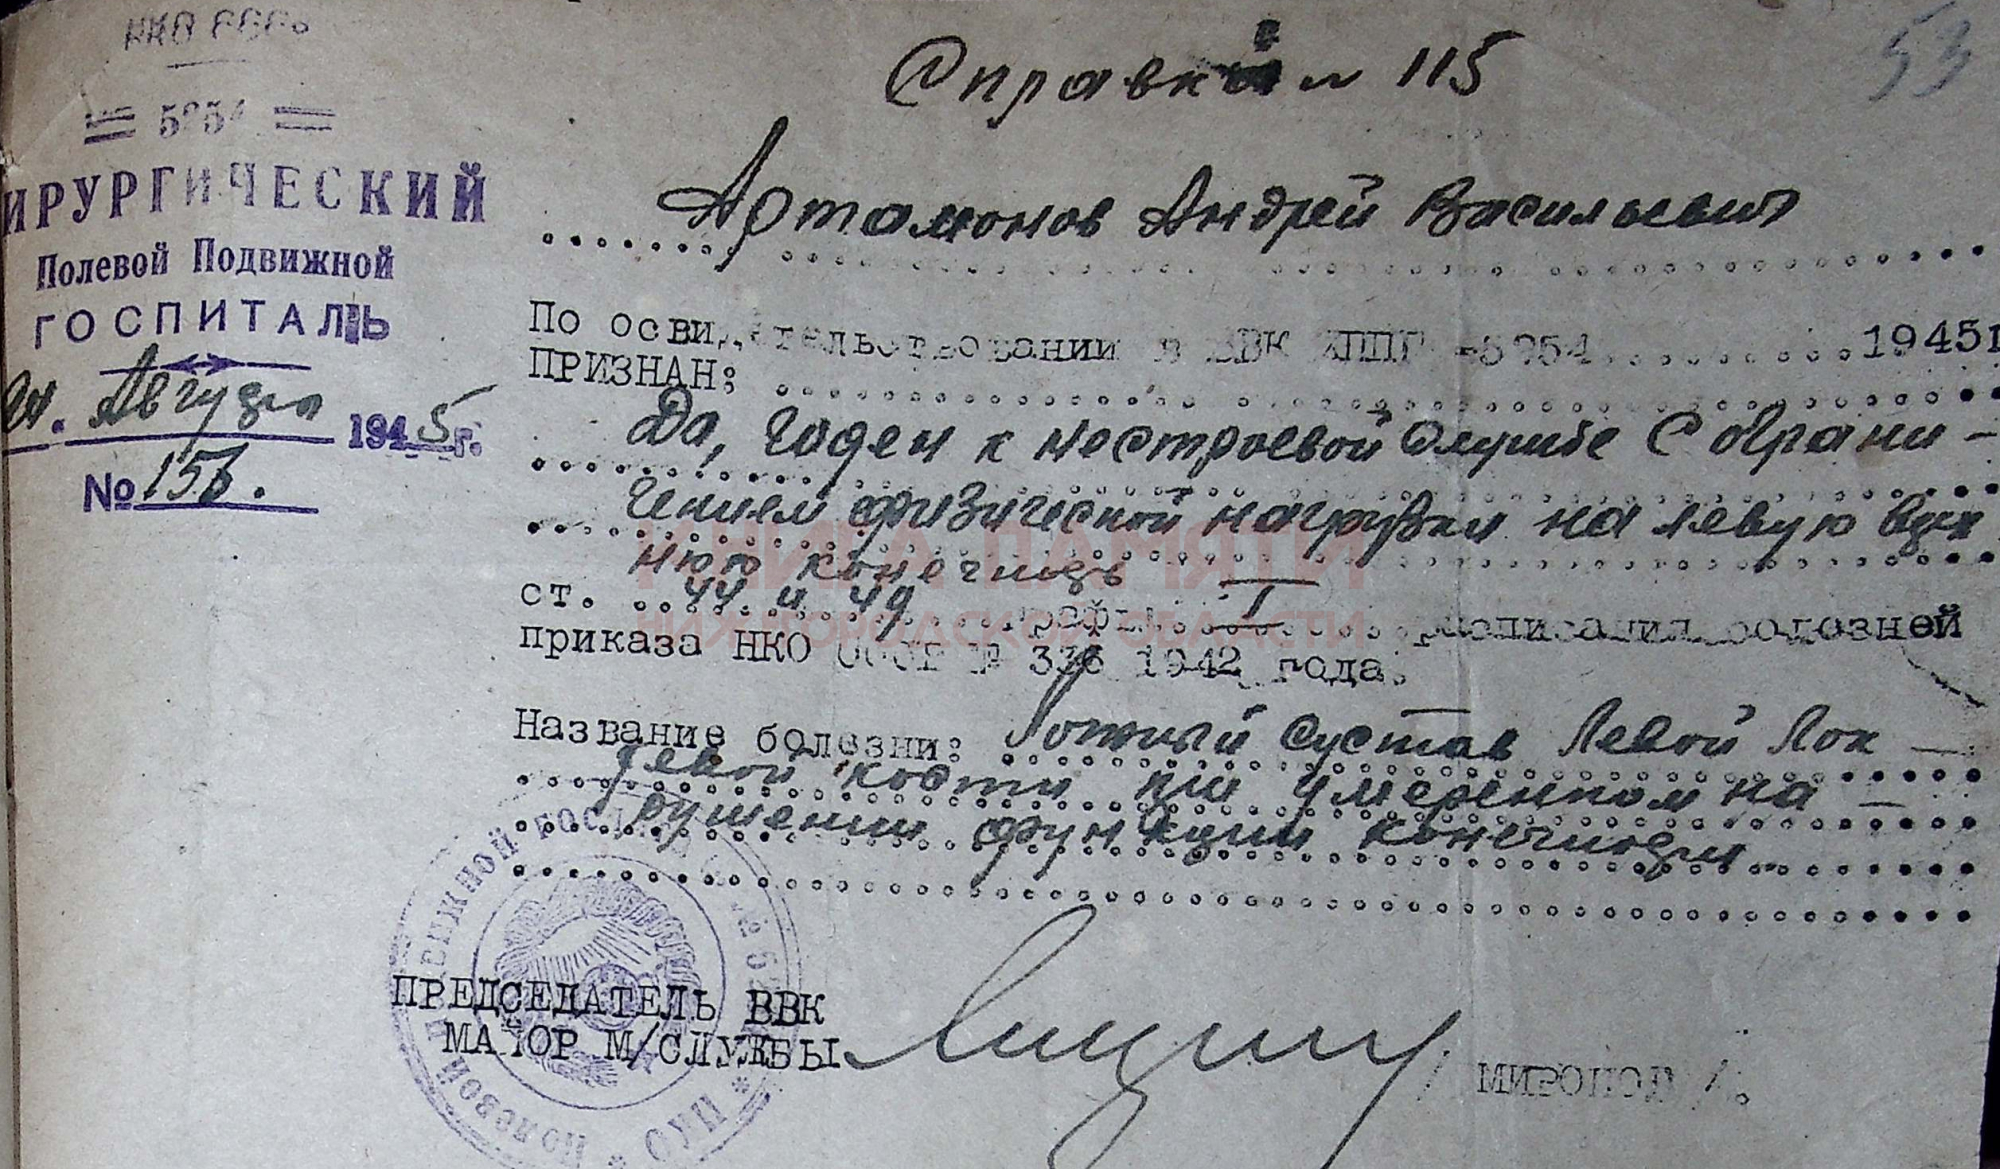 НКО СССР
53
Справка № 115
= 5254 =
ХИРУРГИЧЕСКИЙ
Полевой Подвижной
ГОСПИТАЛЬ
24. Августа 1945 г.
№ 156.
Артамонов Андрей Васильевич
По освидетельствовании в ВВК ХППГ -5254.........1945г
ПРИЗНАН:
Да, годен к нестроевой службе с ограни-
чением физической нагрузки на левую верх
нюю конечность
ст. 44 и 49 графы I расписания болезней
приказа НКО СССР № 336 1942 года.
Название болезни: Ложный сустав левой лок-
тевой кости при умеренном на-
рушении функции конечности.
ПРЕДСЕДАТЕЛЬ ВВК
МАЙОР М/СЛУЖБЫ
/ МИРОПОЛ /.
ПОЛЕВОЙ ПОДВИЖНОЙ ГОСП
* НКО *
КНИГА ПАМЯТИ
НИЖЕГОРОДСКОЙ ОБЛАСТИ